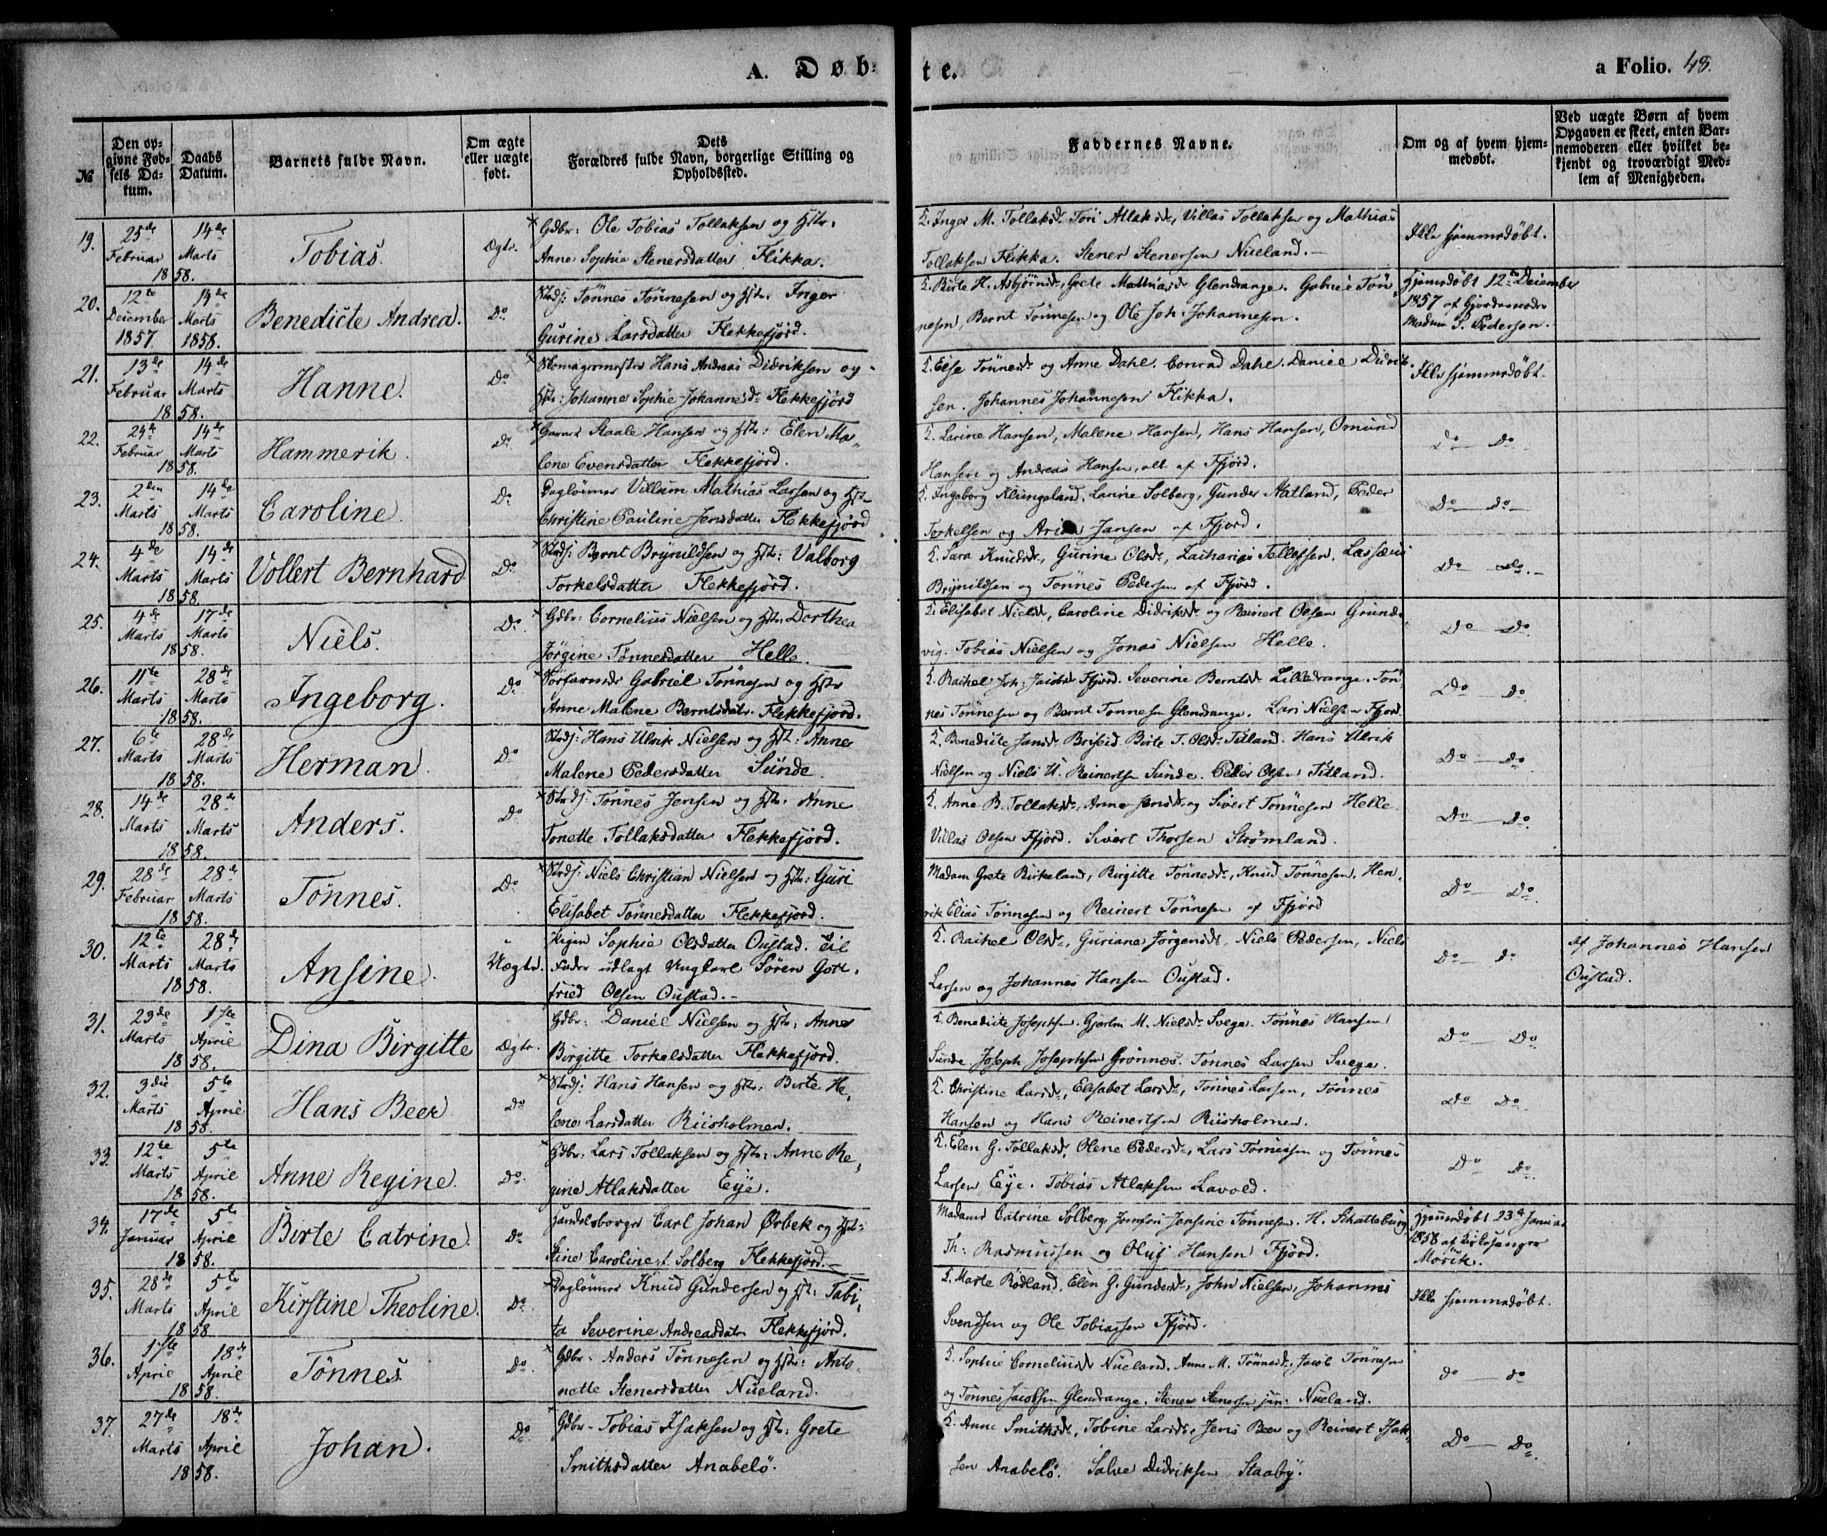 A. Døb=te.
a Folio. 48.
№
Den opgivne Fødsels Datum.
Daabs Datum.
Barnets fulde Navn.
Om ægte eller uægte født.
Dets Forældres fulde Navn, borgerlige Stilling og Opholdssted.
Faddernes Navne.
Om og af hvem hjemmedøbt.
Ved uægte Børn af hvem Opgaven er skeet, enten Barnemoderen eller hvilket bekjendt og troværdigt Medlem af Menigheden.
19. 25de Februar 14de Marts 1858. Tobias. Ægte. Gdbr: Ole Tobias Tollaksen og Hstr:
Anne Sophie Stenersdatter Flikka.
Inger M. Tollaksd. Tori Atlaksd, Villas Tollaksen og Mathias
Tollaksen Flikka. Stener Stenersen Nueland. Ikke hjemmedøbt.
20. 12te December 1857. 14de Marts 1858. Benedicte Andrea. Do Tønnes Tønnesen og Hstr. Inger
Gurine Larsdatter Flekkefjord.
Birte H. Asbjørnsd, Grete Mathiasd Glendrange. Gabriel Tønnesen, Bernt Tønnesen og Ole Joh. Johannesen.
Hjemmedøbt 12te December
1857 af Gjordemoder
Madam Pedersen.
21. 13de Februar 14de Marts 1858. Hanne. Do Skomagermester Hans Andreas Didriksen og
Hstr: Johanne Sophie Johannesd. Flekkefjord
Else Tønnesd. og Anne Dahl. Conrad Dahl. Daniel Didriksen. Johannes Johannesen Flikka. Ikke hjemmedøbt.
22. 24de Februar 14de Marts 1858. Hammerik. Do Garver Staale Hansen og Hstr: Elen Malene Evensdatter Flekkefjord.
Larine Hansen, Malene Hansen, Hans Hansen, Omund
Hansen og Andreas Hansen, alt af Fjord. Do — Do
23. 2den Marts 14de Marts 1858. Caroline. Do Daglønner Villum Mathias Larsen og Hstr
Christine Pauline Jensdatter Flekkefjord
Ingeborg Klungeland, Laurie Solberg, Gunder Aatland, Peder
Torkelsen og Jansen af Fjord. Do — Do
24. 4de Marts 14de Marts 1858. Vollert Bernhard Do Bernt Brynildsen og Hstr: Valborg
Torkelsdatter Flekkefjord.
Sara Knudsd, Gurine Olsd, Zacharias Tollefsen,
Brynildsen og Tønnes Pedersen af Fjord. Do — Do.
25. 4de Marts 17de Marts 1858. Niels. Do. Gdbr: Cornelius Nielsen og Hstr: Dorthea
Jørgine Tønnesdatter Helle.
Elisabet Nielsd, Caroline Didriksd og Reinert Olsen Grundevig. Tobias Nielsen og Jonas Nielsen Helle. Do — Do
26. 11te Marts 28de Marts 1858. Ingeborg. Do. Gabriel Tønnesen og Hstr
Anne Malene Berntsdatr. Flekkefjord.
Rachel Joh. Jacobsd Fjord. Severine Berntsd. Lilledrange. Tønnes Tønnesen og Bernt Tønnesen Glendrange. Lars Nielsen Fjord. Do — Do
27. 6te Marts 28de Marts 1858. Herman. Do Hans Ulrik Nielsen og Hstr: Anne
Malene Pedersdatter Sunde.
Benedicte Jansd. Birte T. Olsd. Titland. Hans Ulrik
Nielsen og Niels U. Reinertsen Sunde. Peder Olsen Titland. Do — Do
28. 14de Marts 28de Marts 1858. Anders. Do Tønnes Jensen og Hstr. Anne
Tonette Tollaksdatter Flekkefjord.
Anne B. Tollaksd, Anne Jensd og Sivert Tønnesen Helle
Villas Olsen Fjord. Sivert Thorsen Strømland. Do — Do
29. 28de Februar 28de Marts 1858. Tønnes. Do Niels Christian Nielsen og Hstr: Guri
Elisabet Tønnesdatter Flekkefjord.
Madam Grete Birkeland, Birgitte Tønnesd, Knud Tønnesen, Henrik Elias Tønnesen og Reinert Tønnesen af Fjord Do — Do
30. 12te Marts 28de Marts 1858. Ansine. Uægte. Pigen Sophie Olsdatter Oustad. Til
Fader udlagt Ungkarl Søren Gotfried Olsen Oustad.
Rachel Olsd, Guriane Jørgensd, Niels Pedersen, Niels
Larsen og Johannes Hansen Oustad. Do — Do af Johannes Hansen
Oustad.
31. 23de Marts 1ste April 1858. Dina Birgitte Ægte. Gdbr: Daniel Nielsen og Hstr: Anne
Birgitte Torkelsdatter Flekkefjord.
Benedicte Josephsen. M. Nielsd. Svege. Tønnes Hansen
Sunde. Joseph Josephsen Grønnes. Tønnes Larsen Svege. Do — Do
32. 3die Marts 5te April 1858. Hans Beer Do Hans Hansen og Hstr: Birte Helene Larsdatter Riisholmen.
Christine Larsd, Elisabet Larsd, Tønnes Larsen, Tønnes
Hansen og Hans Reinertsen Riisholmen. Do Do
33. 12te Marts 5te April 1858. Anne Regine. Do. Gdbr: Lars Tollaksen og Hstr: Anne Regine Atlaksdatter Eye.
Elen G. Tollaksd, Olene Pedersd, Lars Tønnesen og Tønnes
Larsen Eye. Tobias Atlaksen Lavold. Do — Do
34. 17de Januar 5te April 1858. Birte Catrine. Do Handelsborger Carl Johan Ørbek og Hstr:
Stine Caroline f. Solberg Flekkefjord.
Madame Catrine Solberg, Jomfru Jensine Tønnesen. H. Schattebury,
Th: Rasmussen og Oluf Hansen Fjord. Hjemmedøbt 23de Januar
1858 af Kirkesanger
Mørik.
35. 28de Marts 5te April 1858. Kirstine Theoline. Do. Daglønner Knud Gundersen og Hstr: Tabita Severine Andreasdatr Flekkefjord.
Marte Rødland, Elen G. Gundersd, John Nielsen, Johannes
Svendsen og Ole Tobiassen Fjord. Ikke hjemmedøbt.
36. 1ste April 18de April 1858. Tønnes Do. Gdbr. Anders Tønnesen og Hstr: Antonette Stenersdatter Nueland.
Sophie Corneliusd Nueland. Anne M. Tønnesd, Jacob Tønnesen
og Tønnes Jacobsen Glendrange. Stener Stenersen jun: Nueland. Do — Do
37. 27de Marts 18de April 1858. Johan. Do. Gdbr. Tobias Isaksen og Hstr: Grete
Smithsdatter Anabelø.
Anne Smithsd, Tobine Larsd, Jens Beer og Reinert Isaksen Anabelø. Salve Didriksen Staaby. Do — Do